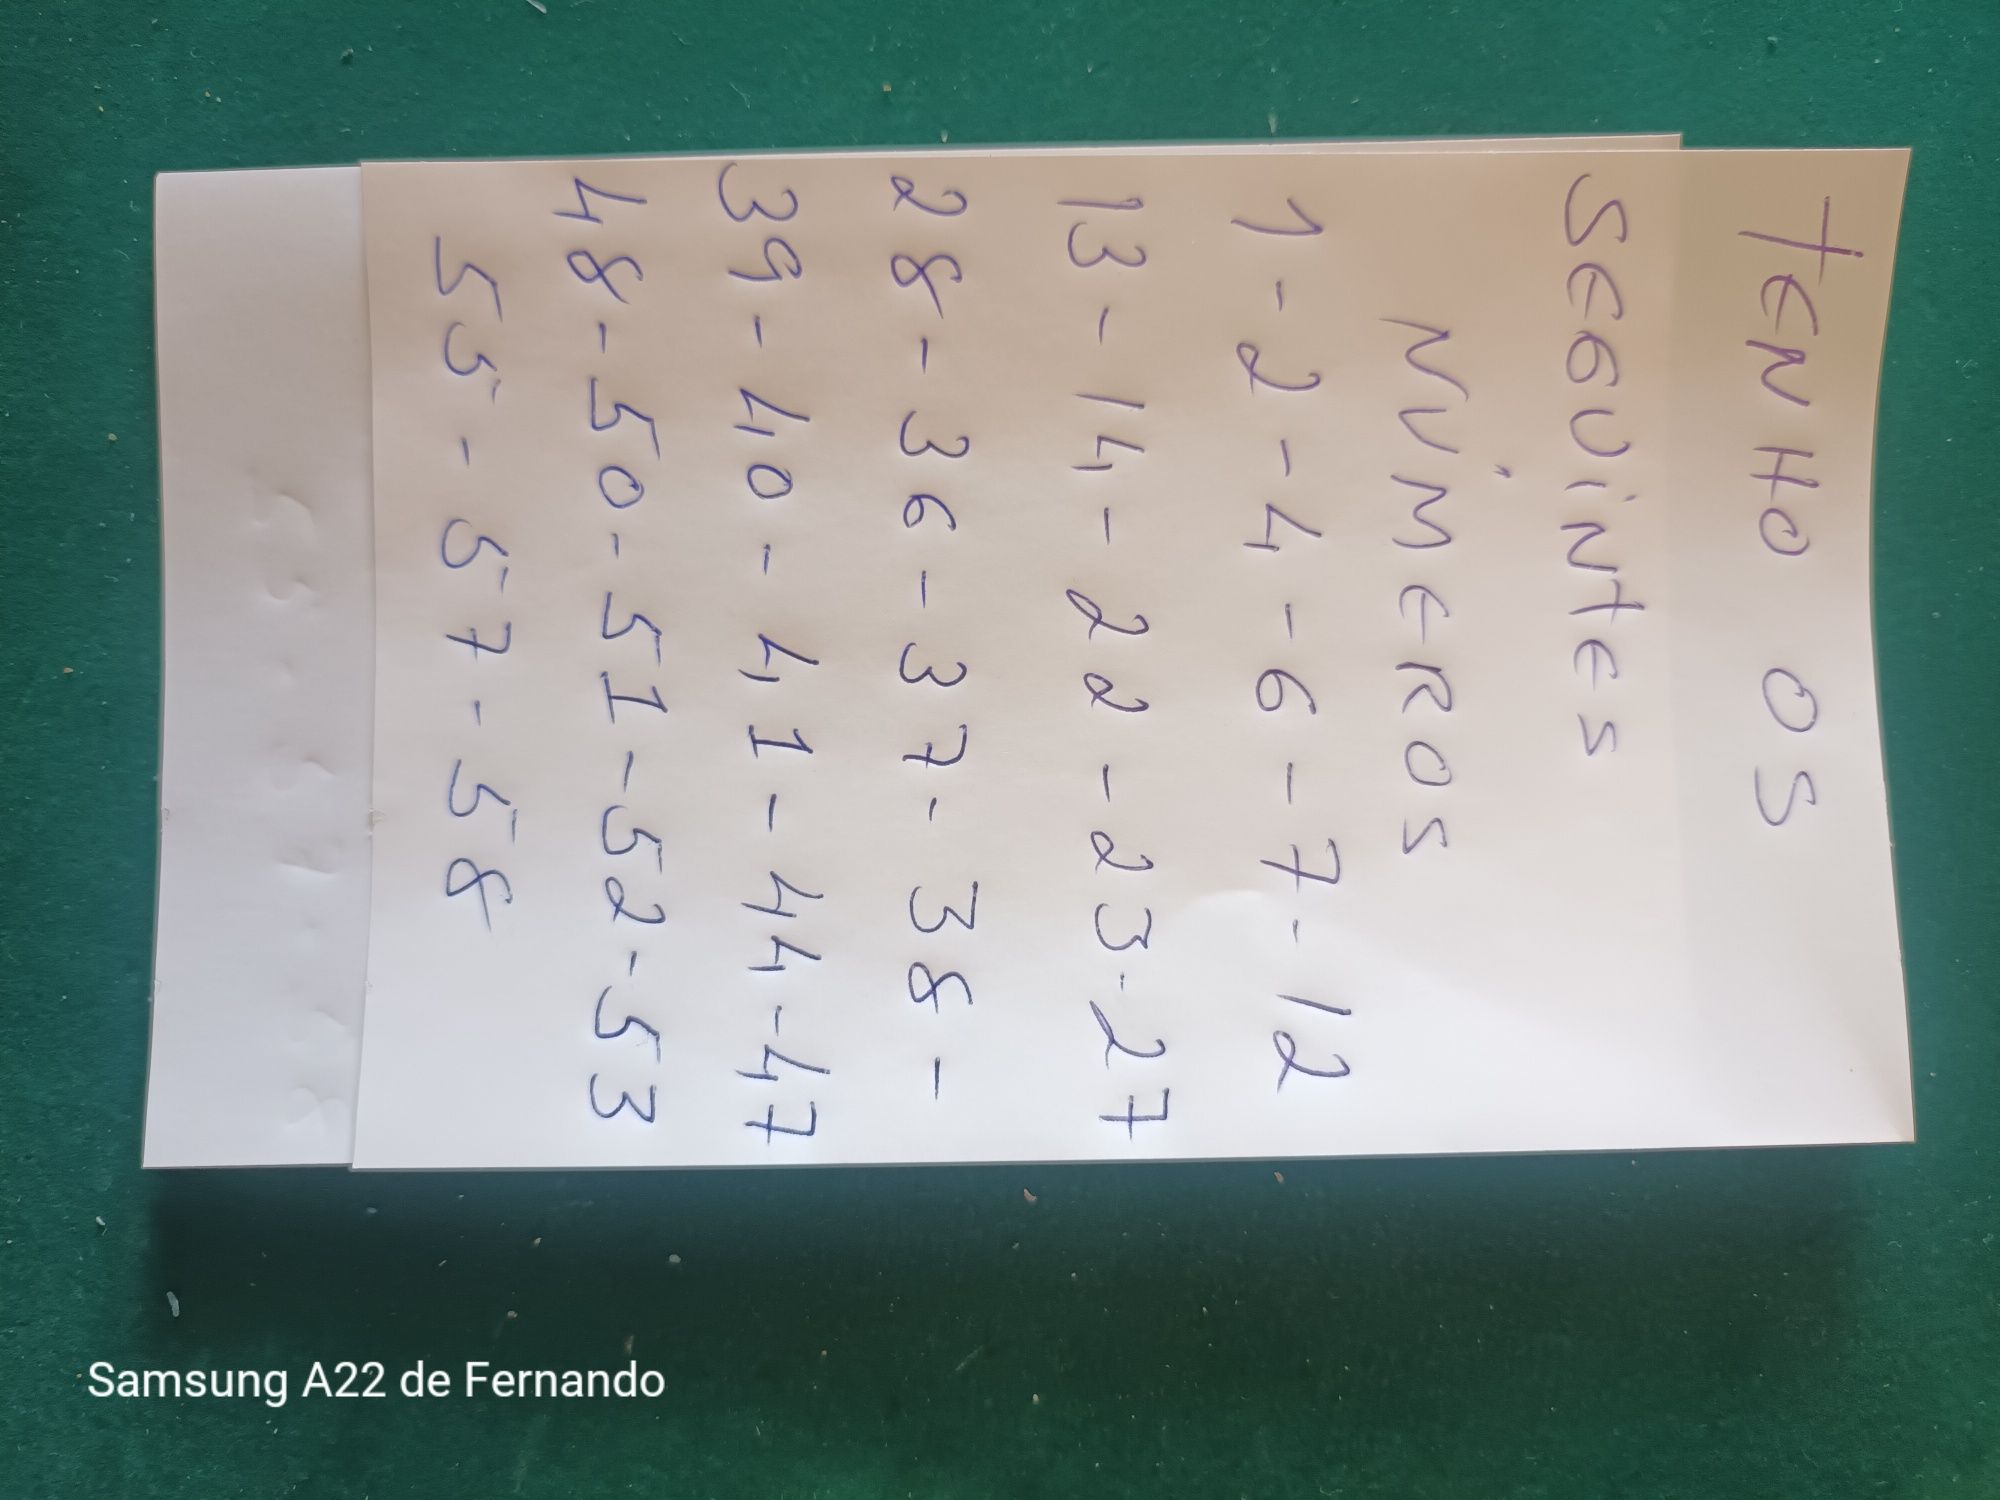 tENHO OS
SEGUiNtES
NÚMEROS
1-2-4-6-7-12
13-14-22-23-27
28-36-37-38-
39-40-41-44-47
48-50-51-52-53
55-57-58
Samsung A22 de Fernando